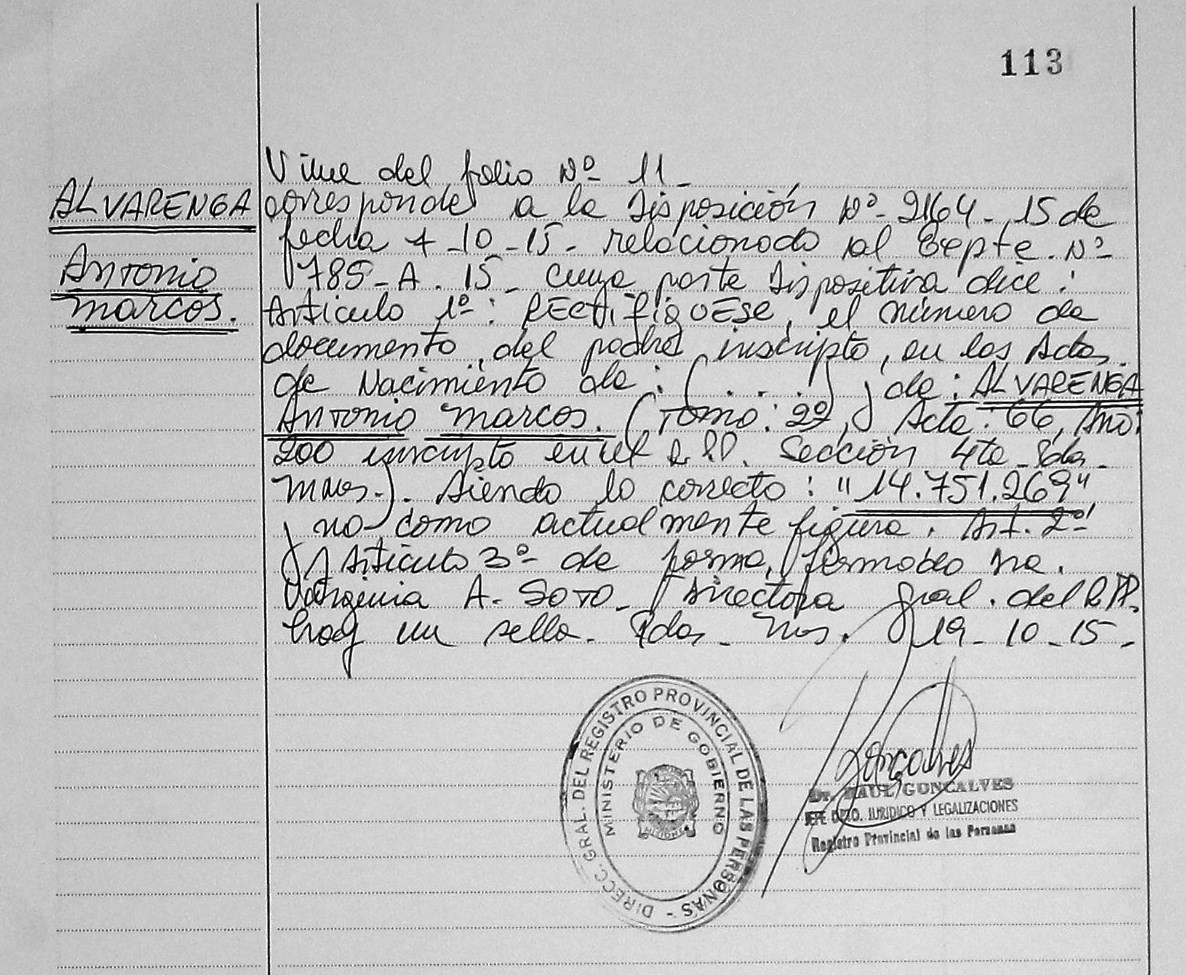 113
Viene del folio Nº 11_
ALVARENGA
Antonio
marcos.
corresponde a la Disposición Nº 2164_ 15 de
fecha 7_10_15_ relacionado al Expte. Nº
785_A. 15_ cuya parte Dispositiva dice:
Artículo 1º: RECtifiquESE, el número de
documento, del padre inscripto, en las Actas
de Nacimiento de: (. . . . .) y de: ALVARENGA
Antonio marcos. (Tomo: 2º, Acta: 66, Año:
200 inscripto en el R.PP. Sección 4ta_ Pdas_
Mnes.). Siendo lo correcto: "14.751.269"
y no como actualmente figura. Art. 2º
y Artículo 3º de forma, firmado
Virginia A. Soto_ Directora Gral. del R.PP.
hay un sello. Pdas_ Mns. 19_10_15_
DIRECC. GRAL. DEL REGISTRO PROVINCIAL DE LAS PERSONAS -
MINISTERIO DE GOBIERNO
MISIONES
Gonçalves
Dr. RAUL GONCALVES
JEFE DPTO. JURIDICO Y LEGALIZACIONES
Registro Provincial de las Personas